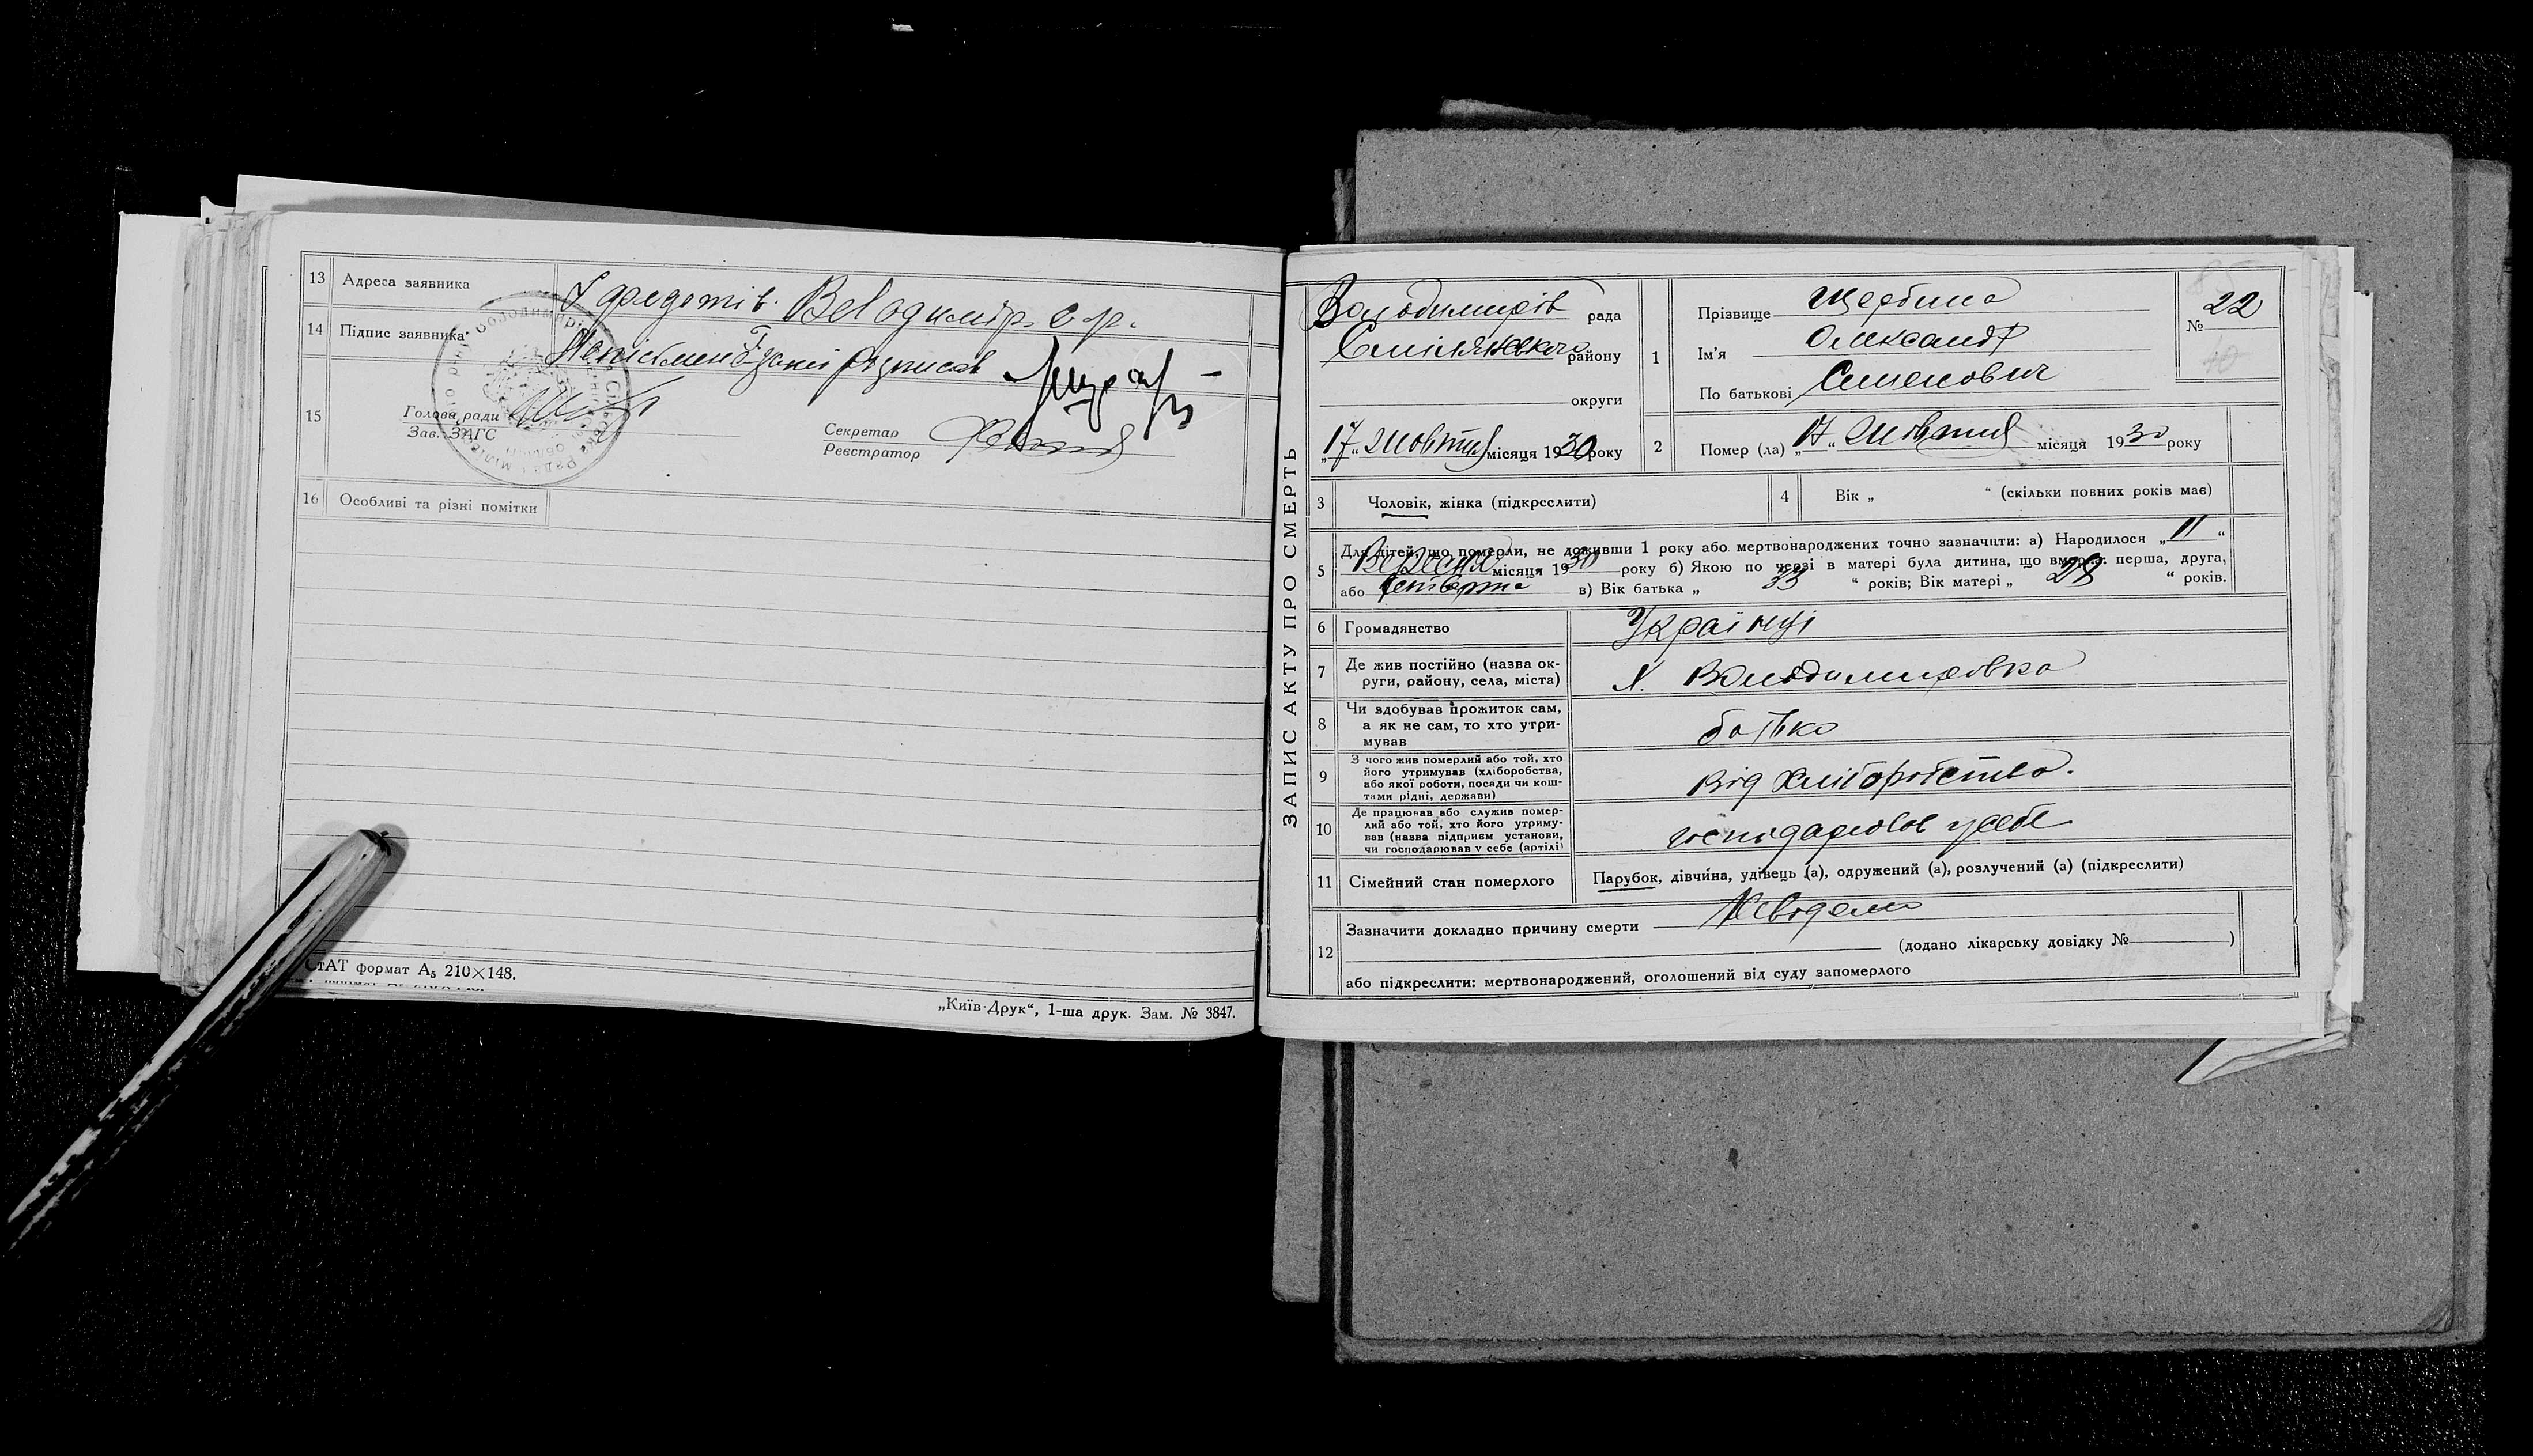 13 Адреса заявника Володимір. с-р.
14 Підпис заявника
15 Голова ради
Зав. ЗАГС
Секретар
Реєстратор
16 Особливі та різні помітки
СтАТ формат А₅ 210×148.
„Київ-Друк“, 1-ша друк. Зам. № 3847.
ЗАПИС АКТУ ПРО СМЕРТЬ
Володимирів рада
Смілянського району
округи
„17“ жовтня місяця 1930 року
1
Прізвище Щербина
Ім'я Олександр
По батькові Семенович
№ 22
2 Помер (ла) „17“ жовтня місяця 1930 року
3 Чоловік, жінка (підкреслити)
4 Вік „ “ (скільки повних років має)
5 Для дітей, що померли, не доживши 1 року або мертвонароджених точно зазначити: а) Народилося „11“
Вересня місяця 1930 року б) Якою по черзі в матері була дитина, що вмерла: перша, друга,
або четверта в) Вік батька „ 33 “ років; Вік матері „ 28 “ років.
6 Громадянство Українці
7 Де жив постійно (назва ок-
руги, району, села, міста)
х. Володимировка
8 Чи здобував прожиток сам,
а як не сам, то хто утри-
мував
батько
9 З чого жив померлий або той, хто
його утримував (хліборобства,
або якої роботи, посади чи кош-
тами рідні, держави)
від хліборобства.
10 Де працював або служив помер-
лий або той, хто його утриму-
вав (назва підприєм установи,
чи господарював у себе (артілі)
господарював у себе
11 Сімейний стан померлого Парубок, дівчина, удівець (а), одружений (а), розлучений (а) (підкреслити)
12 Зазначити докладно причину смерти Невідомо
(додано лікарську довідку № )
або підкреслити: мертвонароджений, оголошений від суду запомерлого